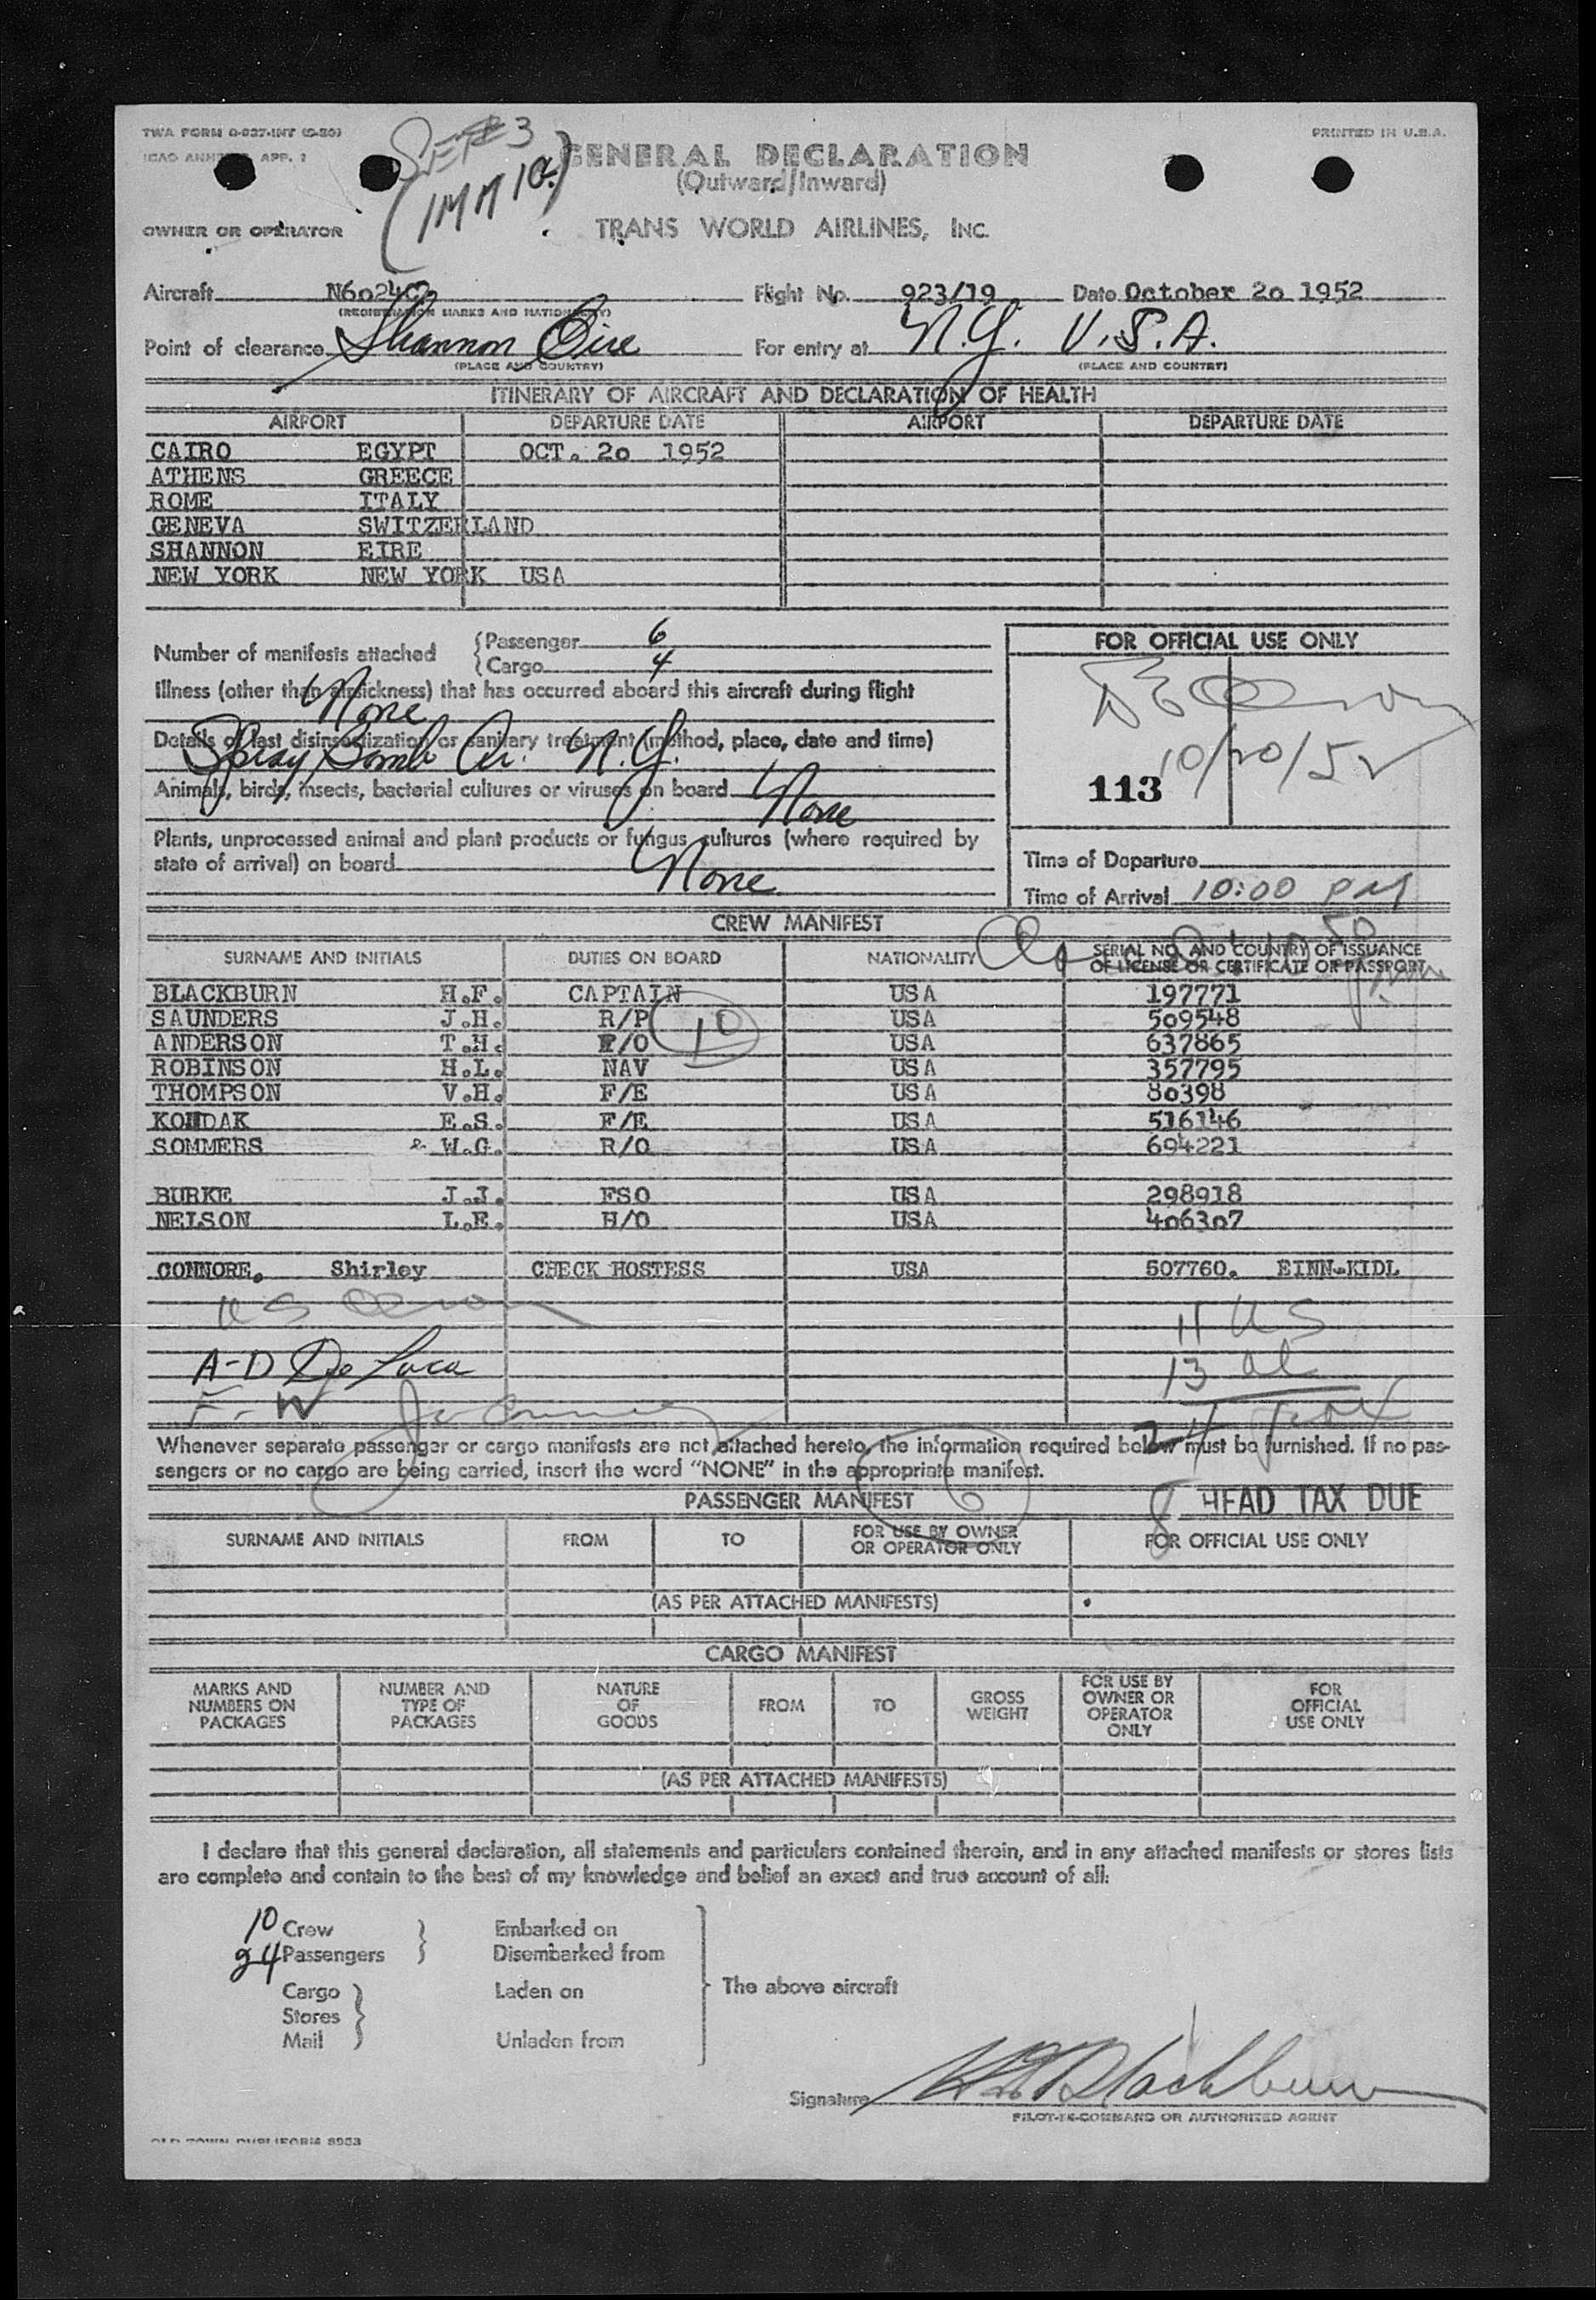 TWA FORM O-937-INT (5-50)
PRINTED IN U.S.A.
ICAO ANNEX APP. 1
SET #3
GENERAL DECLARATION
(Outward/Inward)
OWNER OR OPERATOR
TRANS WORLD AIRLINES, INC.
Aircraft N6024C Flight No. 923/19 Date October 20 1952
(REGISTRATION MARKS AND NATIONALITY)
Point of clearance Shannon Eire For entry at N.Y. U.S.A.
(PLACE AND COUNTRY) (PLACE AND COUNTRY)
ITINERARY OF AIRCRAFT AND DECLARATION OF HEALTH
AIRPORT DEPARTURE DATE AIRPORT DEPARTURE DATE
CAIRO EGYPT OCT. 20 1952
ATHENS GREECE
ROME ITALY
GENEVA SWITZERLAND
SHANNON EIRE
NEW YORK NEW YORK USA
Number of manifests attached
Passenger 6
Cargo 4
FOR OFFICIAL USE ONLY
Illness (other than airsickness) that has occurred aboard this aircraft during flight
None
Details of last disinsectization or sanitary treatment (method, place, date and time)
Spray Bomb Ar. N.Y.
10/20/52
Animals, birds, insects, bacterial cultures or viruses on board None
113
Plants, unprocessed animal and plant products or fungus cultures (where required by
state of arrival) on board None
Time of Departure
Time of Arrival 10:00 PM
CREW MANIFEST
SURNAME AND INITIALS DUTIES ON BOARD NATIONALITY SERIAL NO. AND COUNTRY OF ISSUANCE
OF LICENSE OR CERTIFICATE OR PASSPORT
BLACKBURN H.F. CAPTAIN USA 197771
SAUNDERS J.H. R/P USA 509548
10
ANDERSON T.H. F/O USA 637865
ROBINSON H.L. NAV USA 357795
THOMPSON V.H. F/E USA 80398
KONDAK E.S. F/E USA 516146
SOMMERS & W.G. R/O USA 694221
BURKE J.J. FSO USA 298918
NELSON L.E. H/O USA 406307
CONNORE. Shirley CHECK HOSTESS USA 507760. EINN-KIDL
11 US
A-D De Luca
13 al
24
Whenever separate passenger or cargo manifests are not attached hereto, the information required below must be furnished. If no pas-
sengers or no cargo are being carried, insert the word “NONE” in the appropriate manifest.
6
PASSENGER MANIFEST
8 HEAD TAX DUE
SURNAME AND INITIALS FROM TO FOR USE BY OWNER
OR OPERATOR ONLY FOR OFFICIAL USE ONLY
(AS PER ATTACHED MANIFESTS)
CARGO MANIFEST
MARKS AND
NUMBERS ON
PACKAGES
NUMBER AND
TYPE OF
PACKAGES
NATURE
OF
GOODS
FROM
TO
GROSS
WEIGHT
FOR USE BY
OWNER OR
OPERATOR
ONLY
FOR
OFFICIAL
USE ONLY
(AS PER ATTACHED MANIFESTS)
I declare that this general declaration, all statements and particulars contained therein, and in any attached manifests or stores lists
are complete and contain to the best of my knowledge and belief an exact and true account of all:
10 Crew Embarked on
24 Passengers Disembarked from
Cargo Laden on The above aircraft
Stores
Mail Unladen from
Signature H F Blackburn
PILOT-IN-COMMAND OR AUTHORIZED AGENT